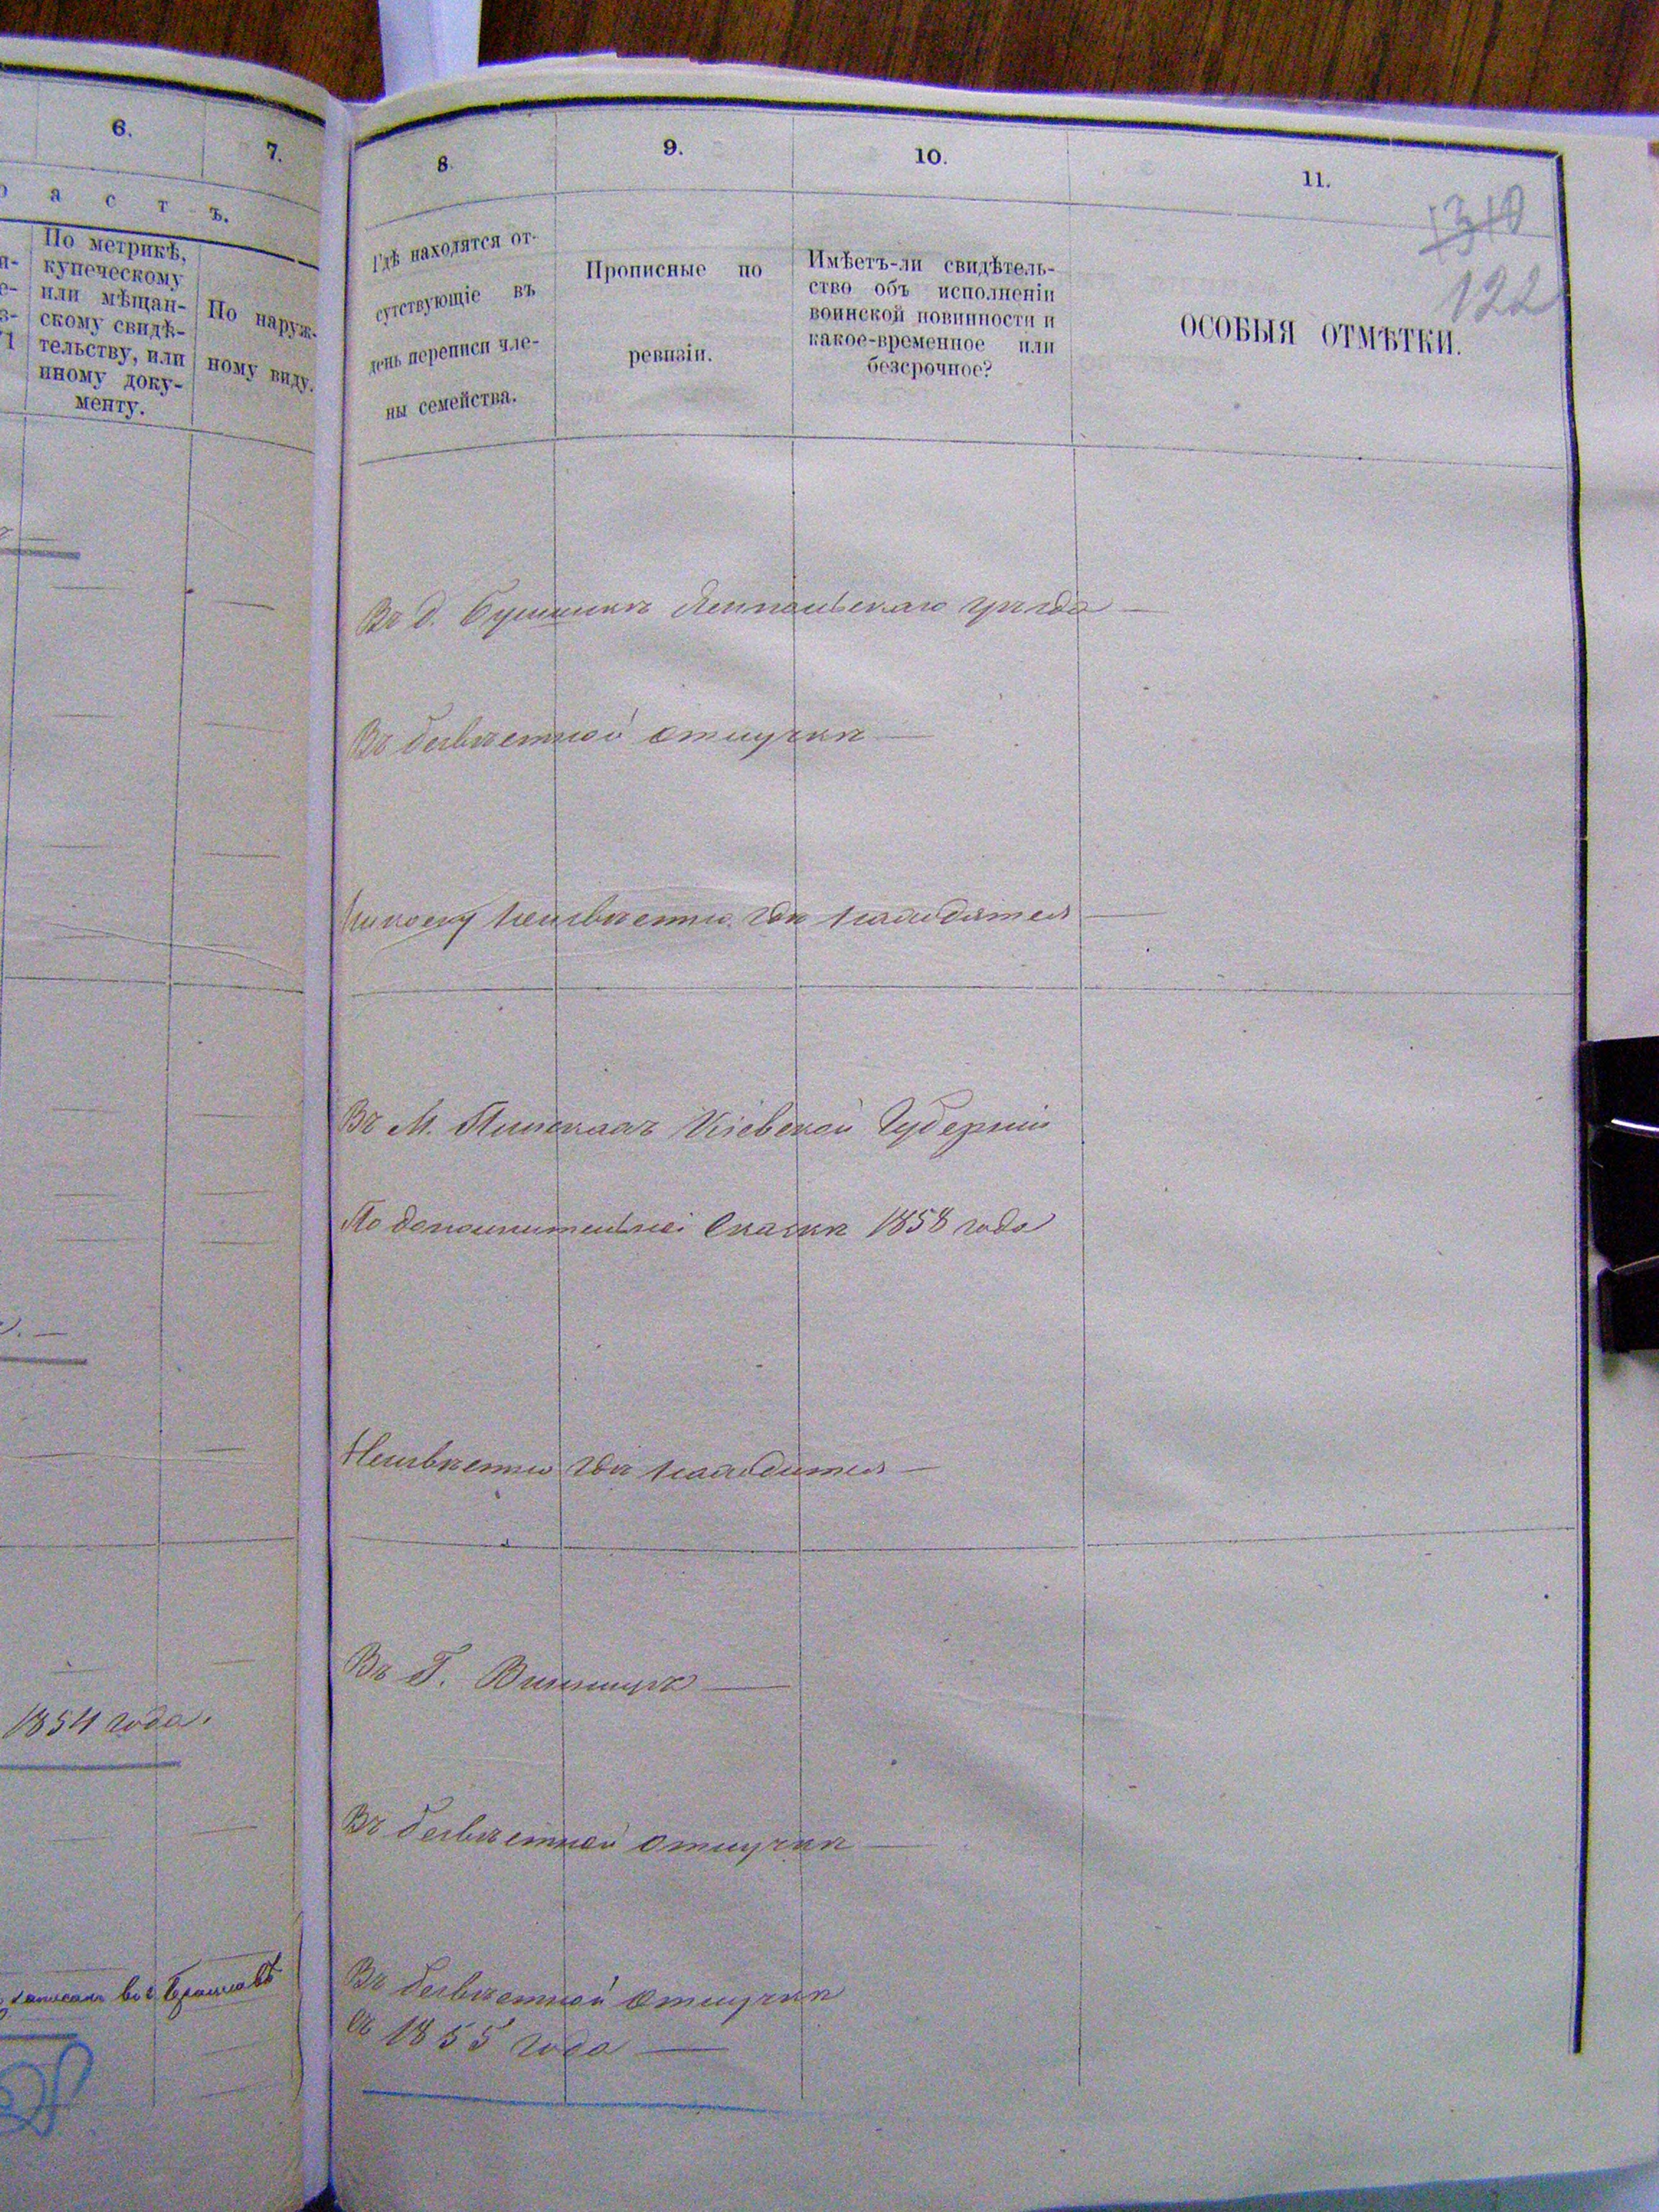 6.
7.
а с т ъ.
По метрикѣ,
купеческому
или мѣщан-
скому свидѣ-
тельству, или
иному доку-
менту.
По наруж-
ному виду.
1854 года.
записанъ
8.
9.
10.
11.
1310
122
Гдѣ находятся от-
сутствующіе въ
день переписи чле-
ны семейства.
Прописные по
ревизіи.
Имѣетъ-ли свидѣтель-
ство объ исполненіи
воинской повинности и
какое-временное или
безсрочное?
ОСОБЫЯ ОТМѢТКИ.
Въ д. Ямпольскаго уѣзда
Въ безвѣстной отлучкѣ
неизвѣстно гдѣ находятся
Въ М. Кіевской Губерніи
По дополнительной Сказкѣ 1858 года
Неизвѣстно гдѣ находится
Въ Г. Винницѣ
Въ безвѣстной отлучкѣ
Въ безвѣстной отлучкѣ
съ 1855 года